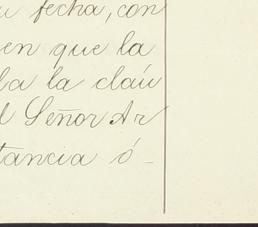 u fecha, con
en que la
la la cláu
l Señor Ar
tancia ó-